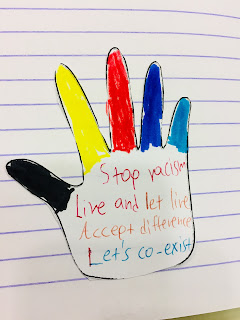 Stop racism
Live and let live
Accept difference
Let's co-exist